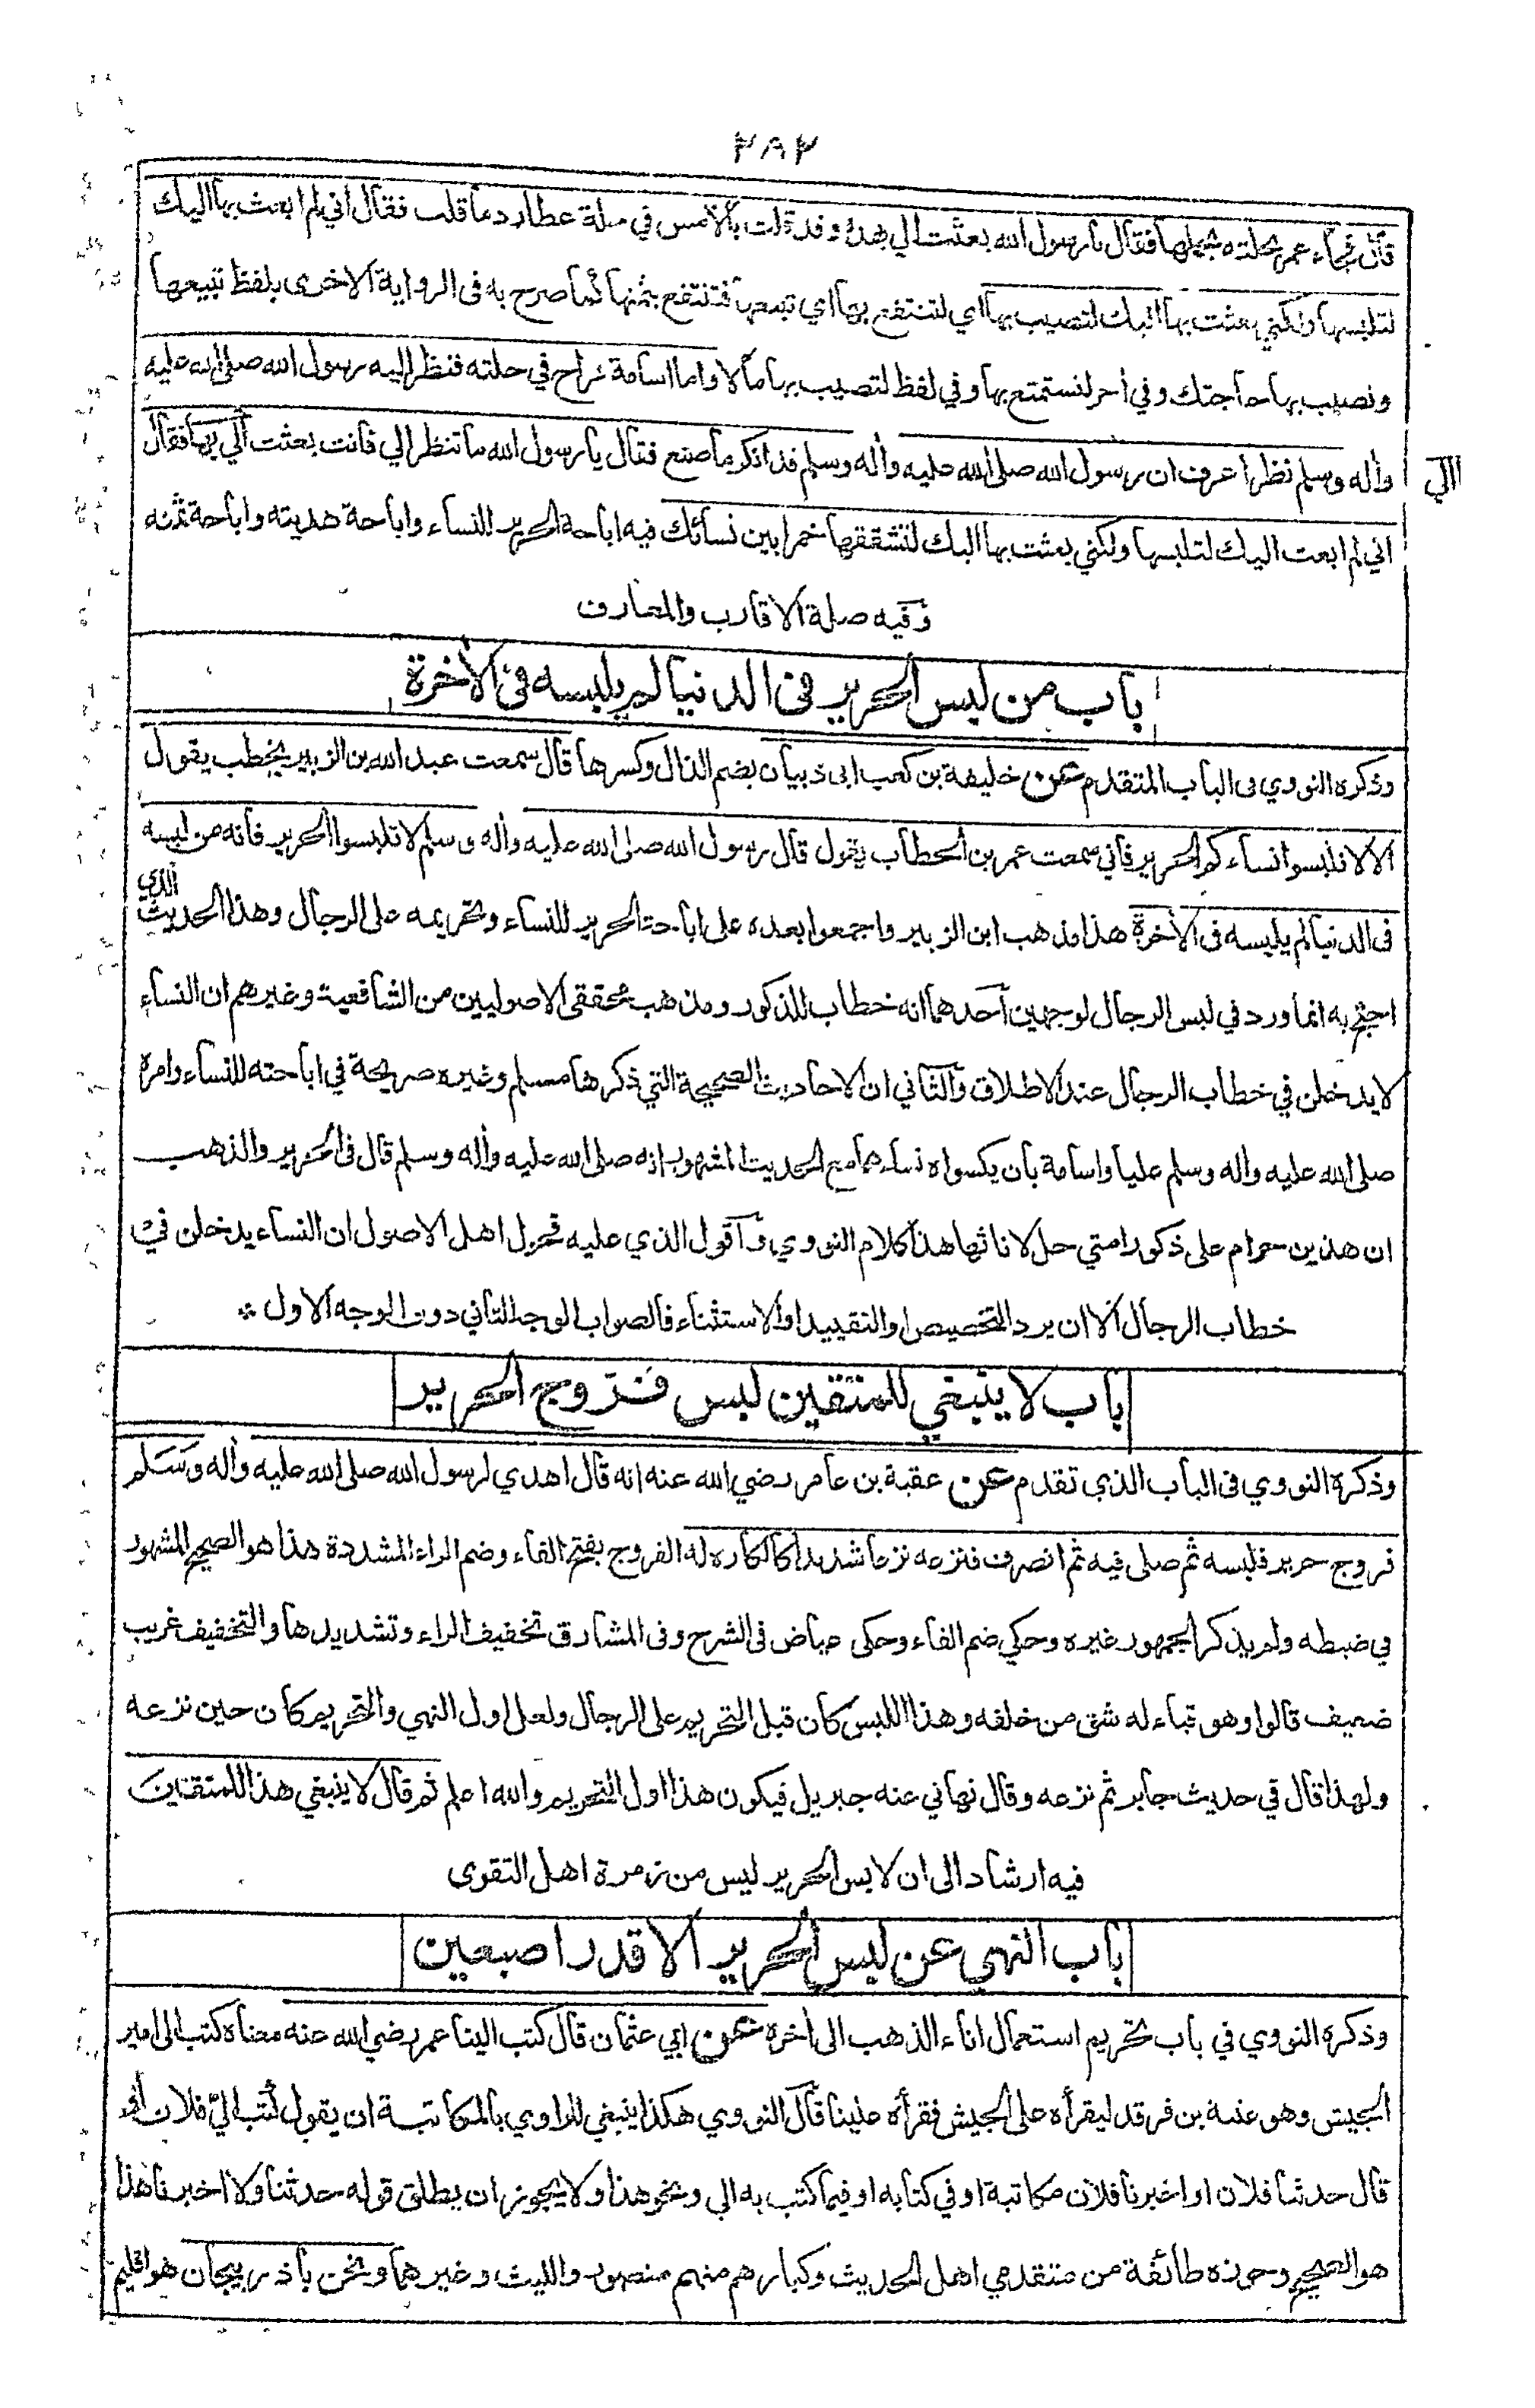 ٢٨٢
قال فجاء عمر بحلته يحملها فقال يا رسول الله بعثت الي بهذه وقد قلت بالامس في حلة عطارد ما قلت فقال اني لم ابعث بها اليك
لتلبسها ولكني بعثت بها اليك لتصيب بها اي لتنتفع بها اي تبيعها فتنتفع بثمنها كما صرح به في الرواية الاخرى بلفظ تبيعها
وتصيب بها حاجتك وفي أخر لتستمتع بها وفي لفظ لتصيب بها مالا واما اسامة فراح في حلته فنظر اليه رسول الله صلى الله عليه
وأله وسلم نظرا عرف ان رسول الله صلى الله عليه وأله وسلم قد انكر ما صنع فقال يا رسول الله ما تنظر الي فانت بعثت الي بها فقال
الي
اني لم ابعث اليك لتلبسها ولكني بعثت بها اليك لتشققها خمرا بين نسائك فيه اباحة الحرير للنساء واباحة هديته واباحة ثمنه
وفيه صلة الاقارب والمعارف
باب من لبس الحرير في الدنيا لم يلبسه في الأخرة
وذكره النووي في الباب المتقدم عن خليفة بن كعب ابي ذبيان بضم الذال وكسرها قال سمعت عبد الله بن الزبير يخطب يقول
الا لا تلبسوا نساءكم الحرير فاني سمعت عمر بن الخطاب يقول قال رسول الله صلى الله عليه وأله وسلم لا تلبسوا الحرير فانه من لبسه
في الدنيا لم يلبسه في الأخرة هذا مذهب ابن الزبير واجمعوا بعده على اباحة الحرير للنساء وتحريمه على الرجال وهذا الحديث الذي
احتج به انما ورد في لبس الرجال لوجهين احدهما انه خطاب للذكور ومذهب محققي الاصوليين من الشافعية وغيرهم ان النساء
لا يدخلن في خطاب الرجال عند الاطلاق والثاني ان الاحاديث الصحيحة التي ذكرها مسلم وغيره صريحة في اباحته للنساء وامره
صلى الله عليه واله وسلم عليا واسامة بان يكسواه نساءهما مع الحديث المشهور انه صلى الله عليه وأله وسلم قال في الحرير والذهب
ان هذين حرام على ذكور امتي حل لاناثها هذا كلام النووي واقول الذي عليه اهل الاصول ان النساء يدخلن في
خطاب الرجال الا ان يرد التخصيص او التقييد او الاستثناء فالصواب الوجه الثاني دون الوجه الاول *
باب لا ينبغي للمتقين لبس فرّوج الحرير
وذكره النووي في الباب الذي تقدم عن عقبة بن عامر رضي الله عنه انه قال اهدي لرسول الله صلى الله عليه وأله وسلم
فروج حرير فلبسه ثم صلى فيه ثم انصرف فنزعه نزعا شديدا كالكاره له الفروج بفتح الفاء وضم الراء المشددة هذا هو الصحيح المشهور
في ضبطه ولم يذكر الجمهور غيره وحكي ضم الفاء وحكى عياض في الشرح وفي المشارق تخفيف الراء وتشديدها والتخفيف غريب
ضعيف قالوا وهو قباء له شق من خلفه وهذا اللبس كان قبل التحريم على الرجال ولعل اول النهي والتحريم كان حين نزعه
ولهذا قال في حديث جابر ثم نزعه وقال نهاني عنه جبريل فيكون هذا اول التحريم والله اعلم ثم قال لا ينبغي هذا للمتقين
فيه ارشاد الى ان لابس الحرير ليس من زمرة اهل التقوى
باب النهي عن لبس الحرير الا قدر اصبعين
وذكره النووي في باب تحريم استعمال اناء الذهب الى أخره عن ابي عثمان قال كتب الينا عمر رضي الله عنه معناه كتب الى امير
الجيش وهو عتبة بن فرقد ليقرأه على الجيش فقرأه علينا قال النووي هكذا ينبغي للراوي بالمكاتبة ان يقول كتب اليّ فلان او
قال حدثنا فلان او اخبرنا فلان مكاتبة او في كتابه او فيما كتب به الي ونحو هذا ولا يجوز ان يطلق قوله حدثنا ولا اخبرنا هذا
هو الصحيح وجوزه طائفة من متقدمي اهل الحديث وكبارهم منهم منصور والليث وغيرهما ونحن باذربيجان هو اقليم